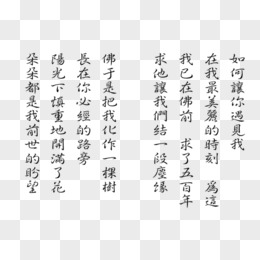 如何讓你遇見我
在我最美麗的時刻　為這
我已在佛前　求了五百年
求他讓我們結一段塵緣
佛于是把我化作一棵樹
長在你必經的路旁
陽光下慎重地開滿了花
朵朵都是我前世的盼望